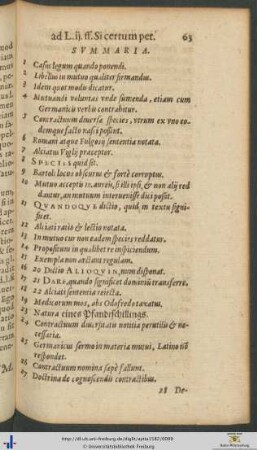 ad L. ij. ff. Si certum pet. 63
SVMMARIA.
1 Casus legum quando ponendi.
2 Libellus in mutuo qualiter formandus.
3 Idem quot modis dicatur.
4 Mutuandi voluntas vnde sumenda, etiam cum
Germanicis verbis contrahitur.
5 Contractuum diuersæ species, vtrum ex vno eo-
demque facto nasci possint.
6 Romani atque Fulgosij sententia notata.
7 Alciatus Viglij præceptor.
8 SPECIES quid sit.
9 Bartoli locus obscurus & fortè corruptus.
10 Mutuo acceptis 10. aureis, si illi ipsi, & non alij red
dantur, an mutuum interuenisse dici possit.
11 QVANDOQVE dictio, quid in textu signi-
ficet.
12 Alciati ratio & lectio notata.
13 In mutuo cur non eadem species reddatur.
14 Propositum in qualibet re inspiciendum.
15 Exempla non arctant regulam.
16 20 Dictio ALIOQVIN, num disponat.
17 21 DARI, quando significet dominiũ transferri.
18 22 Alciati sententia reiecta.
19 Medicorum mos, ab Odofredo taxatus.
23 Natura eines Pfandtschillings.
24 Contractuum diuersitatis notitia perutilis & ne-
cessaria.
25 Germanicus sermo in materia mutui, Latino nõ
respondet.
26 Contractuum nomina sæpè fallunt.
27 Doctrina de cognoscendis contractibus.
28 De-
http://dl.ub.uni-freiburg.de/diglit/
© Universitätsbibliothek Freiburg